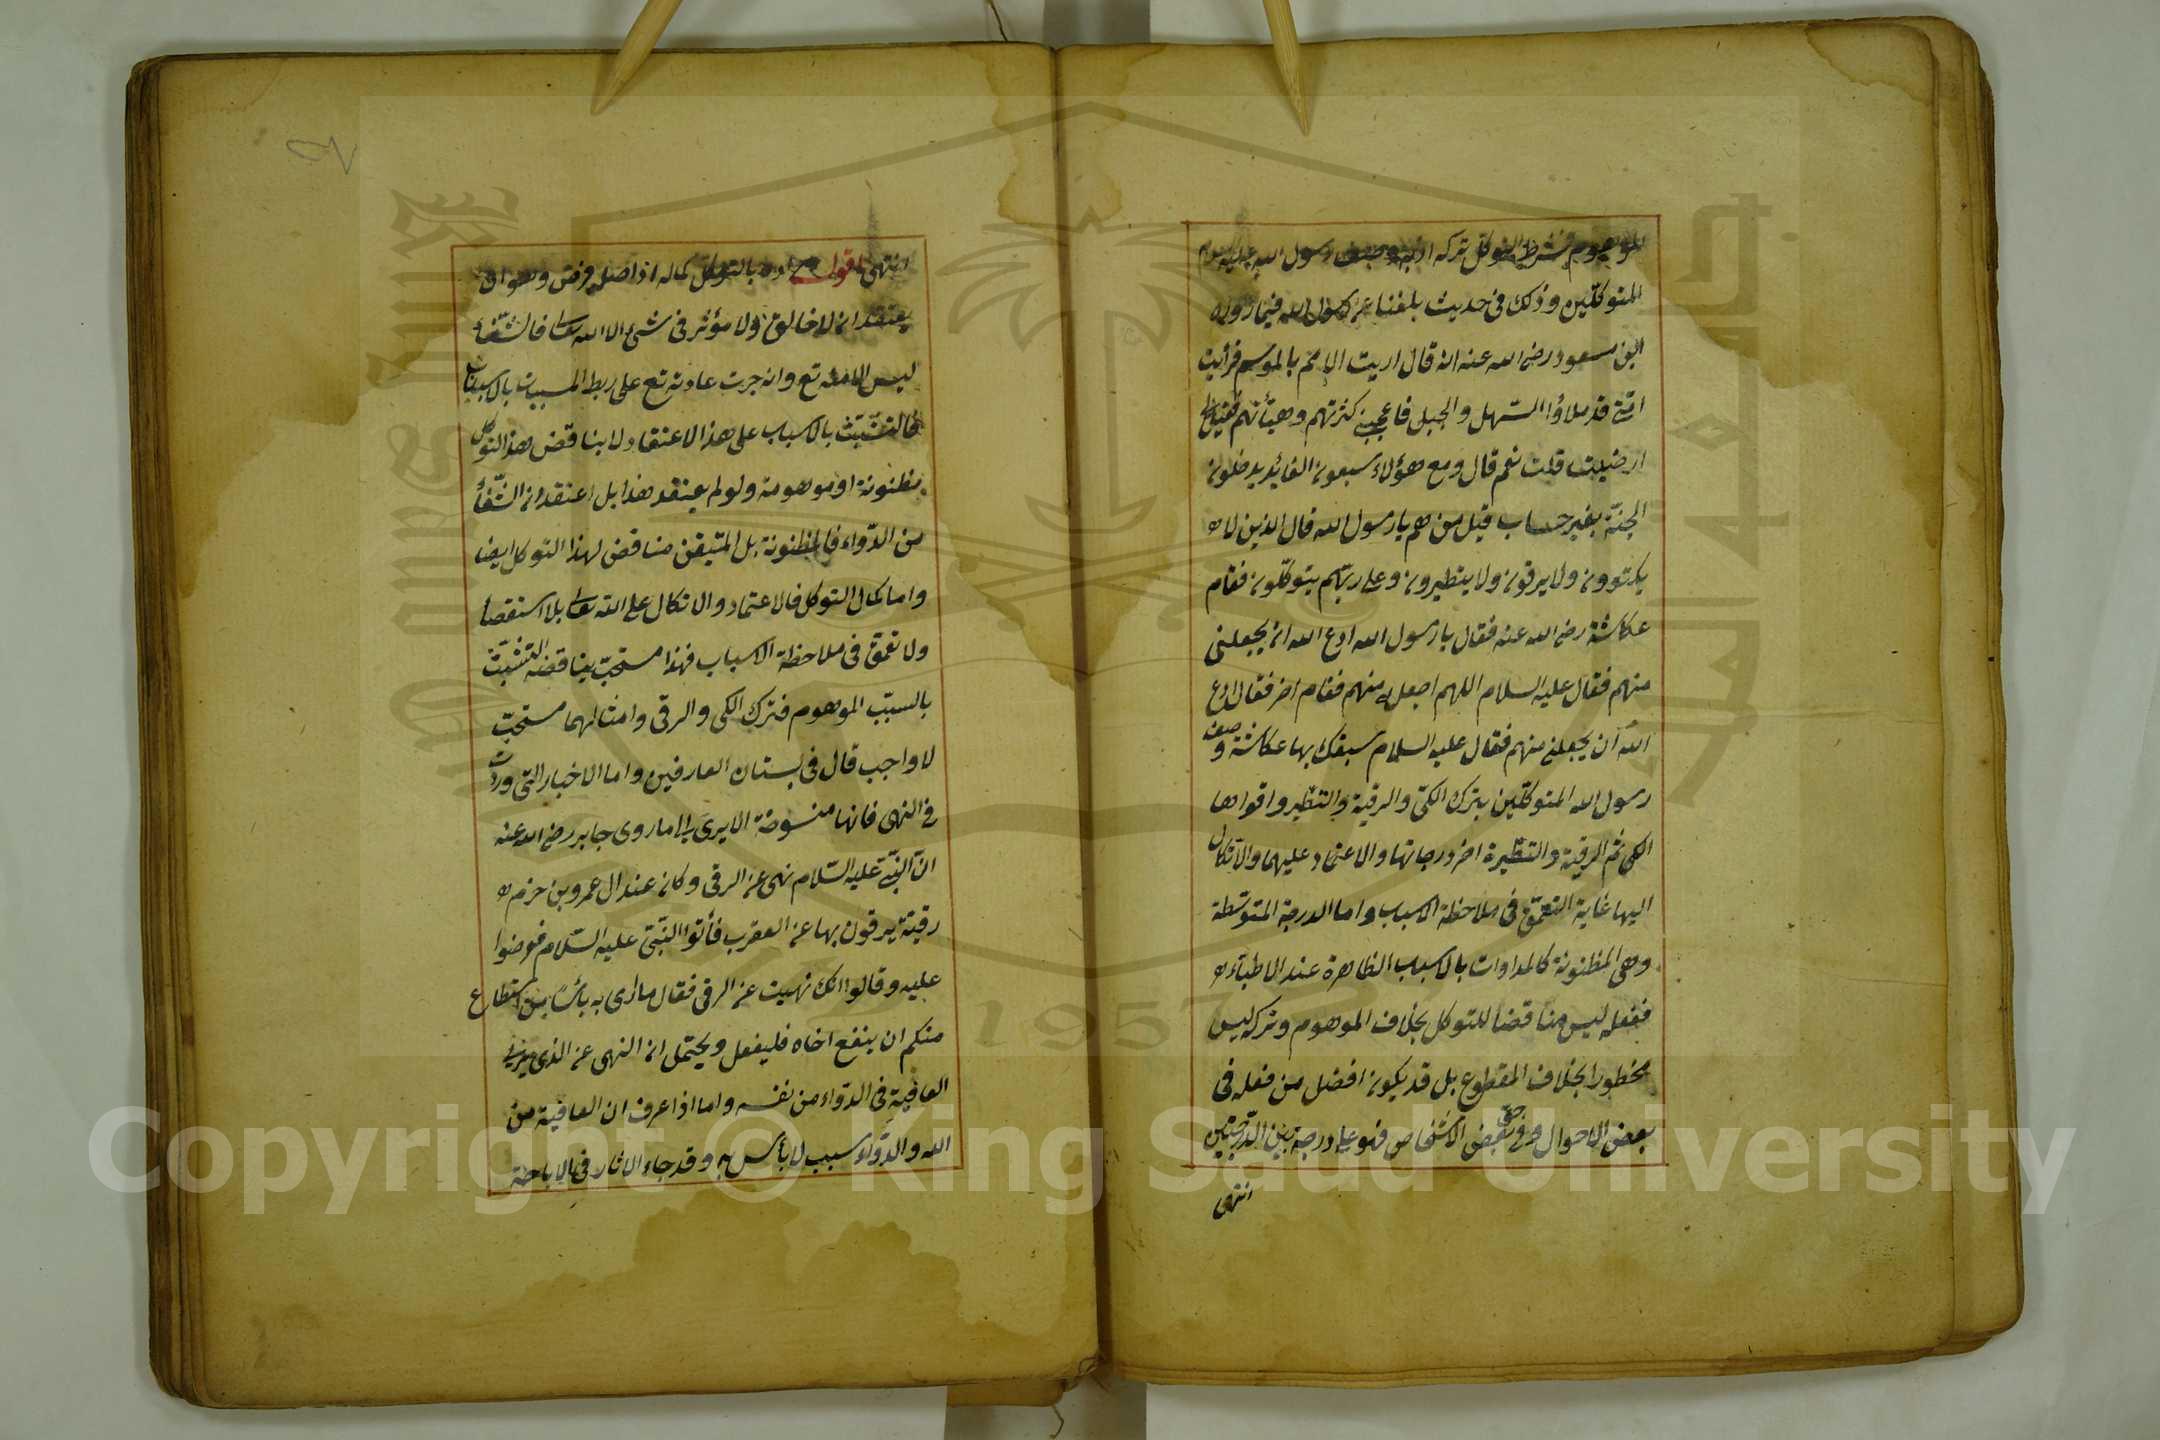 الموهوم فشرط التوكل تركه اذ به وصف رسول الله عليه السلام
المتوكلين وذلك فى حديث بلغنا عن رسول الله فيما رواه
ابن مسعود رضى الله عنه انه قال اريت الامم بالموسم فرأيت
امتى قد ملاؤا السهل والجبل فاعجبنى كثرتهم وهيأتهم فقيل لى
ارضيت قلت نعم قال ومع هؤلاء سبعون الفا يدخلون
الجنة بغير حساب قيل من هم يا رسول الله قال الذين لا
يكتوون ولا يرقون ولا يتطيرون وعلى ربهم يتوكلون فقام
عكاشة رضى الله عنه فقال يا رسول الله ادع الله ان يجعلنى
منهم فقال عليه السلام اللهم اجعله منهم فقام اخر فقال ادع
الله ان يجعلنى منهم فقال عليه السلام سبقك بها عكاشة وصف
رسول الله المتوكلين بترك الكى والرقية والتطير واقواها
الكى ثم الرقية والتطيرة اخر درجاتها والاعتماد عليهما والاتكال
اليها غاية التعمق فى ملاحظة الاسباب واما الدرجة المتوسطة
وهى المظنونة كالمداوات بالاسباب الظاهرة عند الاطباء
ففعله ليس مناقضا للتوكل بخلاف الموهوم وتركه ليس
محظورا بخلاف المقطوع بل قد يكون افضل من فعله فى
بعض الاحوال وفى حق بعض الاشخاص فهو على درجة بين الدرجتين
انتهى
انتهى اقول مراده بالتوكل كماله اذ اصله فرض وهو ان
يعتقد ان لا خالق ولا مؤثر فى شئ الا الله تعالى فالشفاء
ليس الا منه تع وانه جرت عادته تع على ربط المسببات بالاسباب
فالتشبث بالاسباب على هذا الاعتقاد لا يناقض هذا التوكل
مظنونة او موهومة ولو لم يعتقد هذا بل اعتقد ان الشفاء
من الدواء فالمظنونة بل المتيقن مناقض لهذا التوكل ايضا
واما كمال التوكل فالاعتماد والاتكال على الله تعالى بلا استقصاء
ولا تعمق فى ملاحظة الاسباب فهذا مستحب يناقضه التشبث
بالسبب الموهوم فترك الكى والرقى وامثالهما مستحب
لا واجب قال فى بستان العارفين واما الاخبار التى وردت
فى النهى فانها منسوخة الا يرى الى ما روى جابر رضى الله عنه
ان النبى عليه السلام نهى عن الرقى وكان عند ال عمرو بن حزم
رقية يرقون بها عن العقرب فأتوا النبى عليه السلام فعرضوا
عليه وقالوا انك نهيت عن الرقى فقال ما ارى به بأسا من استطاع
منكم ان ينفع اخاه فليفعل ويحتمل ان النهى عن الذى يرى
العافية فى الدواء من نفسه واما اذا عرف ان العافية من
الله والدواء سبب لا بأس به وقد جاء الاثار فى الاباحة
Copyright © King Saud University
1957